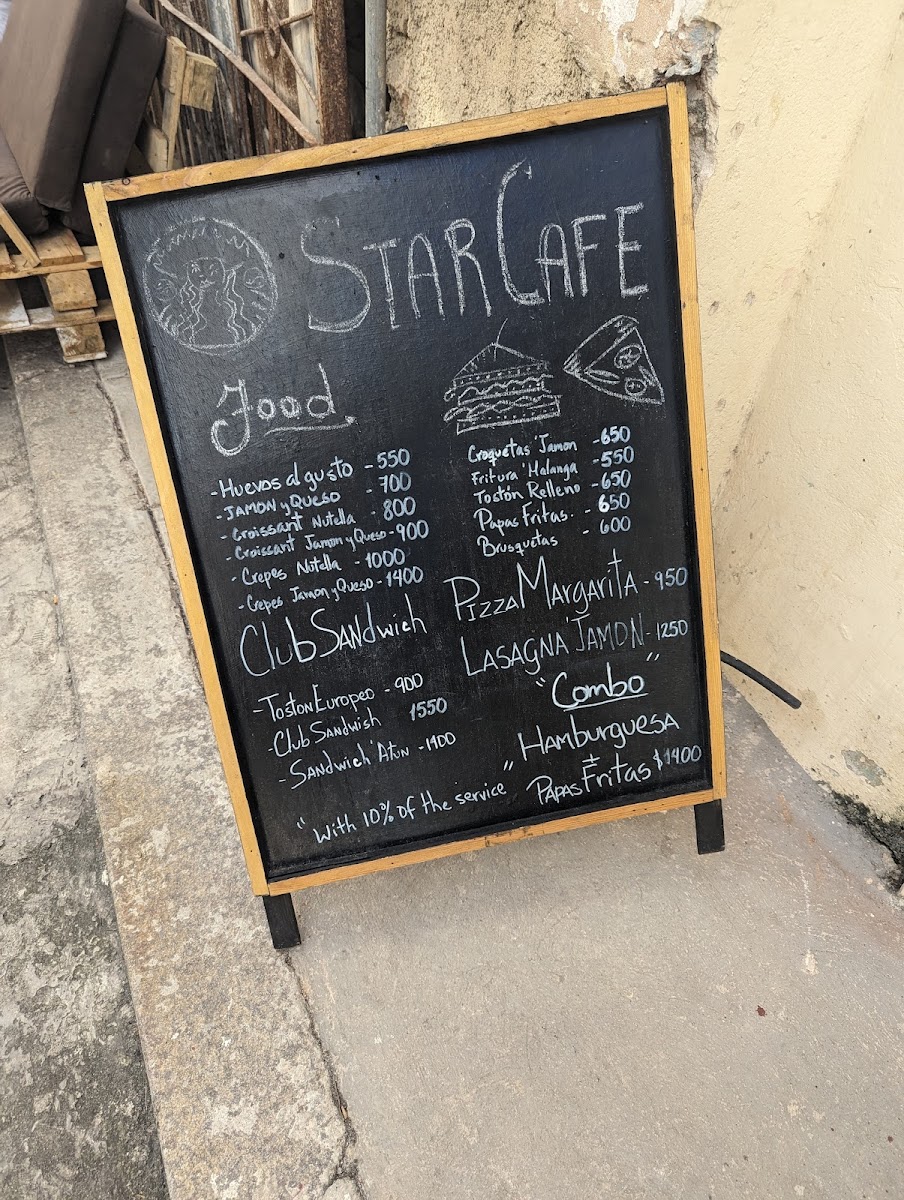 STAR CAFE
Food
- Huevos al gusto - 550
- JAMON y Queso - 700
- Croissant Nutella - 800
- Croissant Jamon y Queso - 900
- Crepes Nutella - 1000
- Crepes Jamon y Queso - 1400
Club SANdwich
- Toston Europeo - 900
- Club SANdwish 1550
- SANdwich 'Atun - 1400
"With 10% of the service"
Croquetas 'Jamon - 650
Fritura 'Malanga - 550
Tostón Relleno - 650
Papas Fritas. - 650
Brusquetas - 600
PizzA MArgAritA - 950
LASAGNA 'JAMON - 1250
"Combo"
HAmburguesA
±
PAPAS Fritas $1400